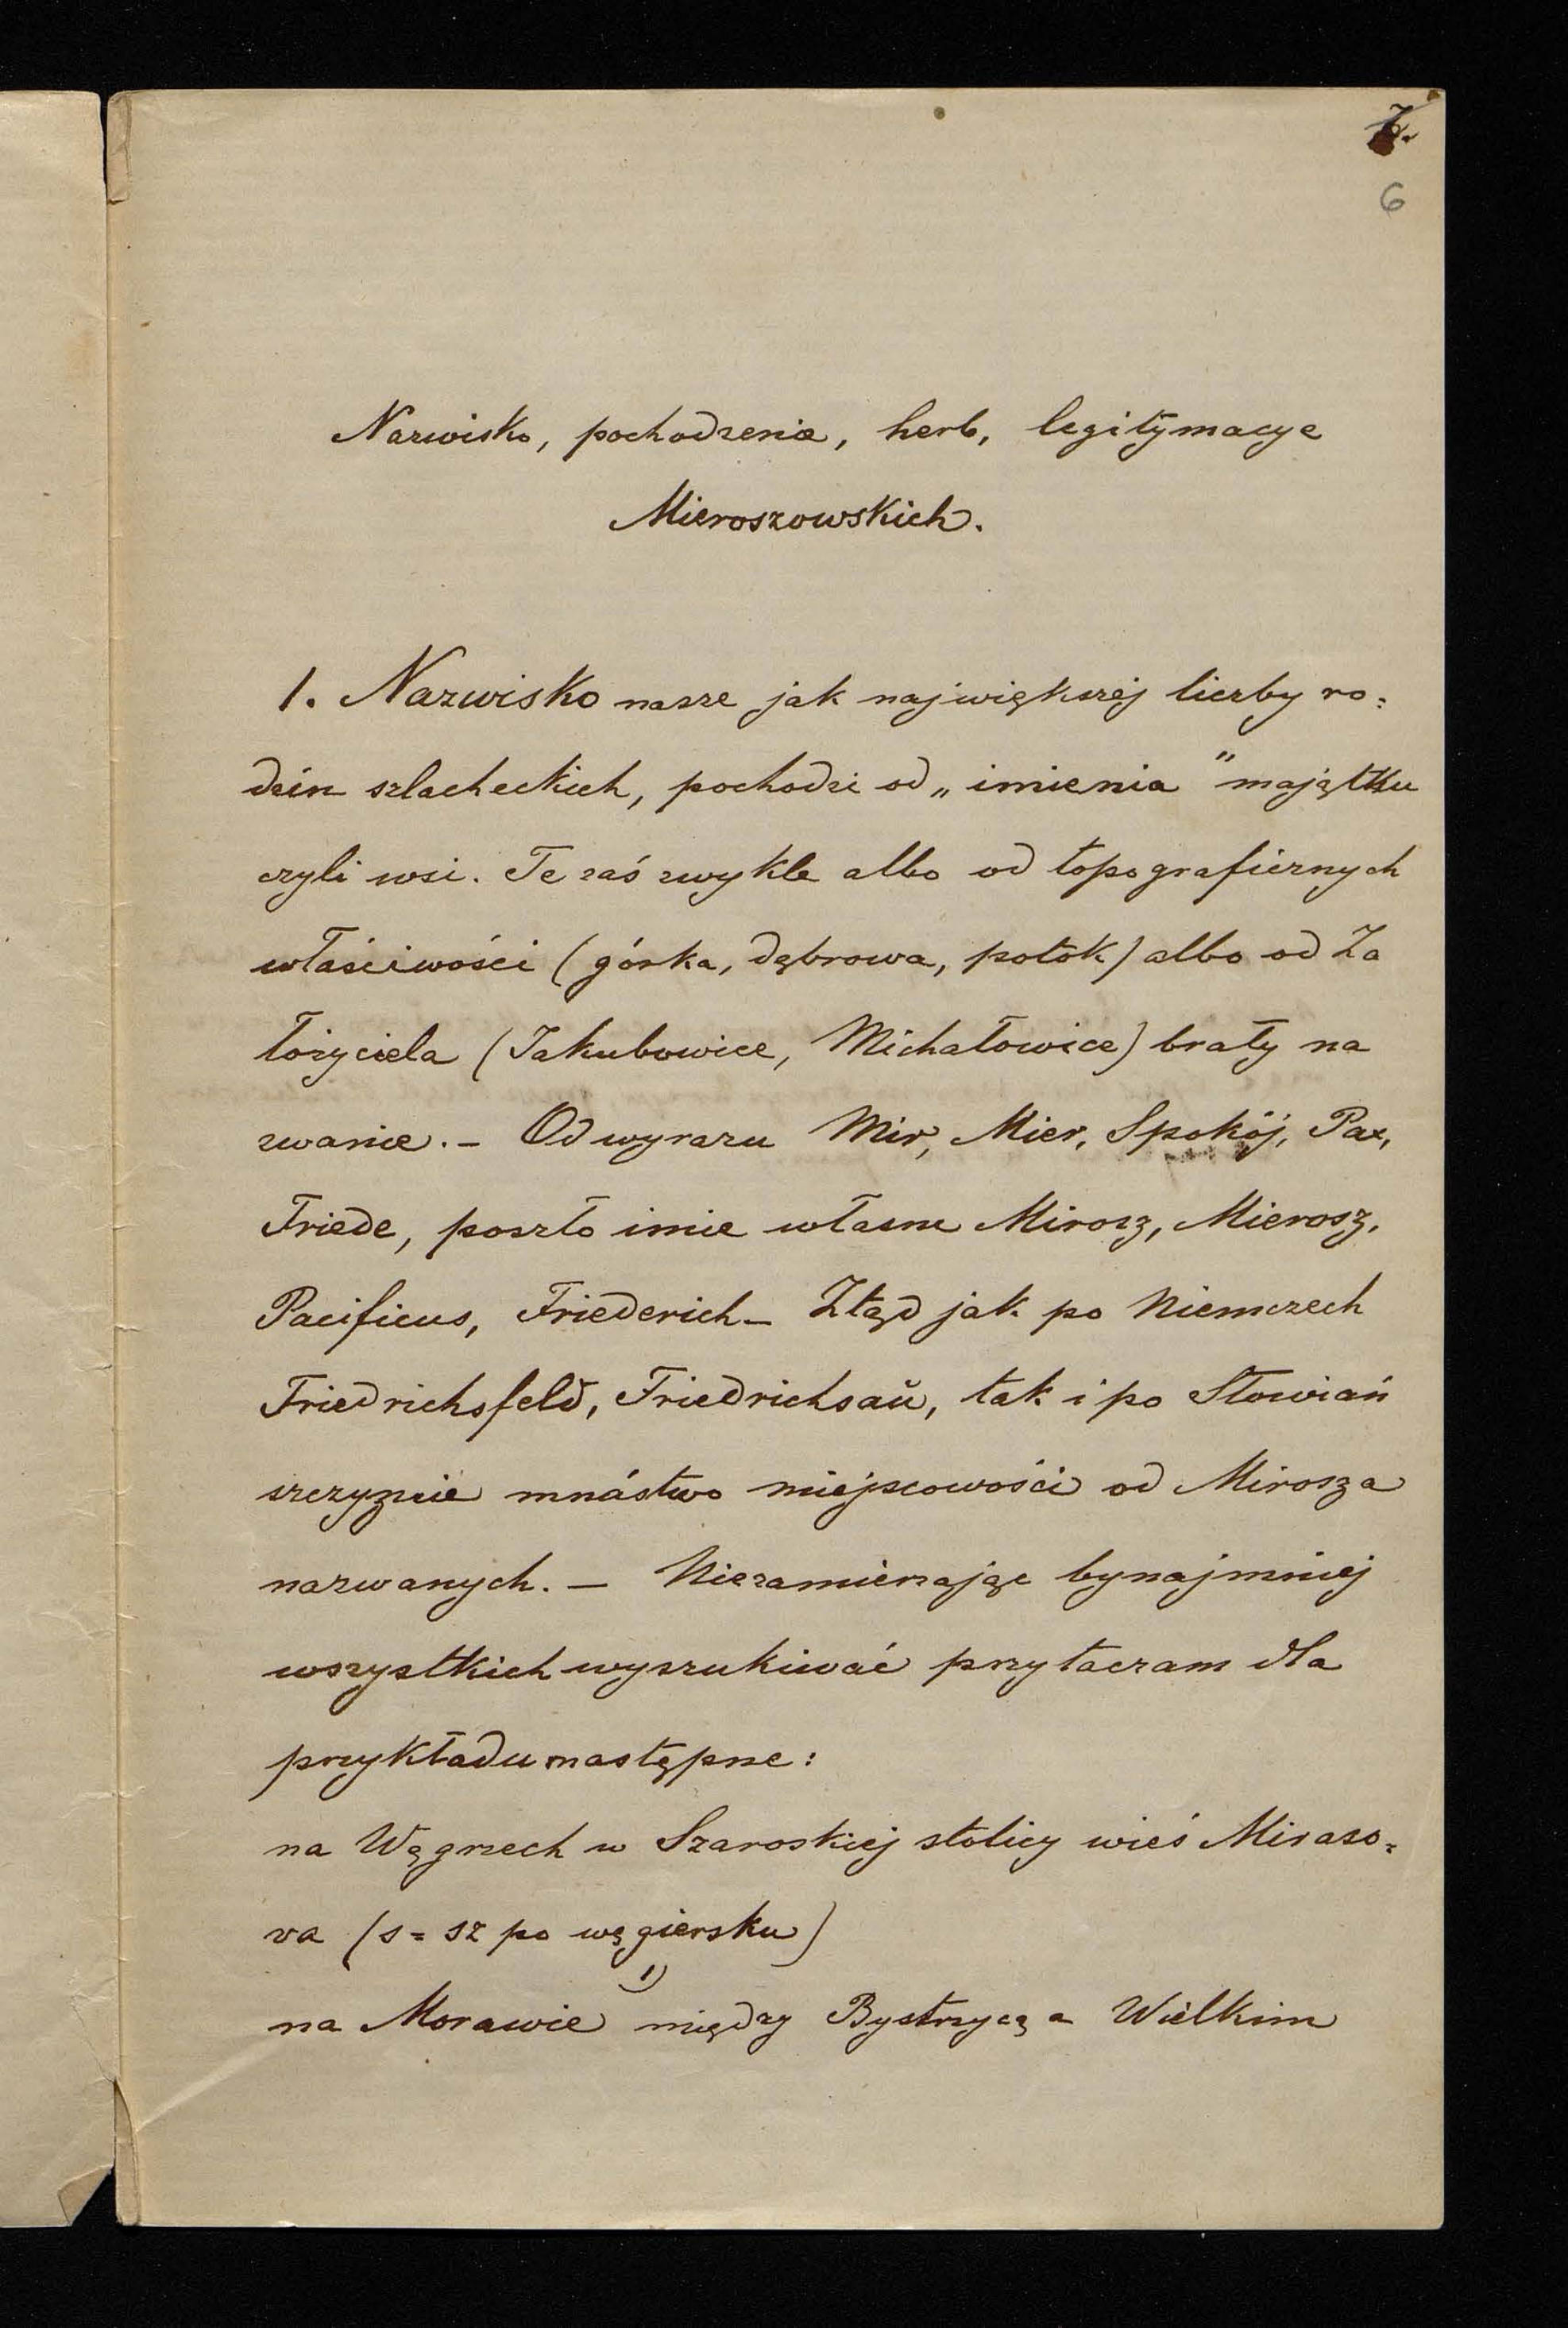 6
Nazwisko, pochodzenie, herb, legitymacye
Mieroszowskich.
1. Nazwisko nasze jak największej liczby ro=
dzin szlacheckich, pochodzi od „imienia" majątku
czyli wsi. Te zaś zwykle albo od topograficznych
właściwości (górka, dąbrowa, potok) albo od Za
łożyciela (Jakubowice, Michałowice) brały na
zwanie. – Od wyrazu Mir, Mier, Spokój, Pax,
Friede, poszło imie własne Mirosz, Mierosz,
Pacificus, Friederich – Ztąd jak po Niemczech
Friedrichsfeld, Friedrichsaŭ, tak i po Słowiań
szczyznie mnóstwo miejscowości od Mirosza
nazwanych. – Niezamierzając bynajmniej
wszystkich wyszukiwać przytaczam dla
przykładu następne:
na Węgrzech w Szaroskiej stolicy wieś Miraso=
va (s = sz po węgiersku)
na Morawie 1) między Bystrzycą a Wielkim